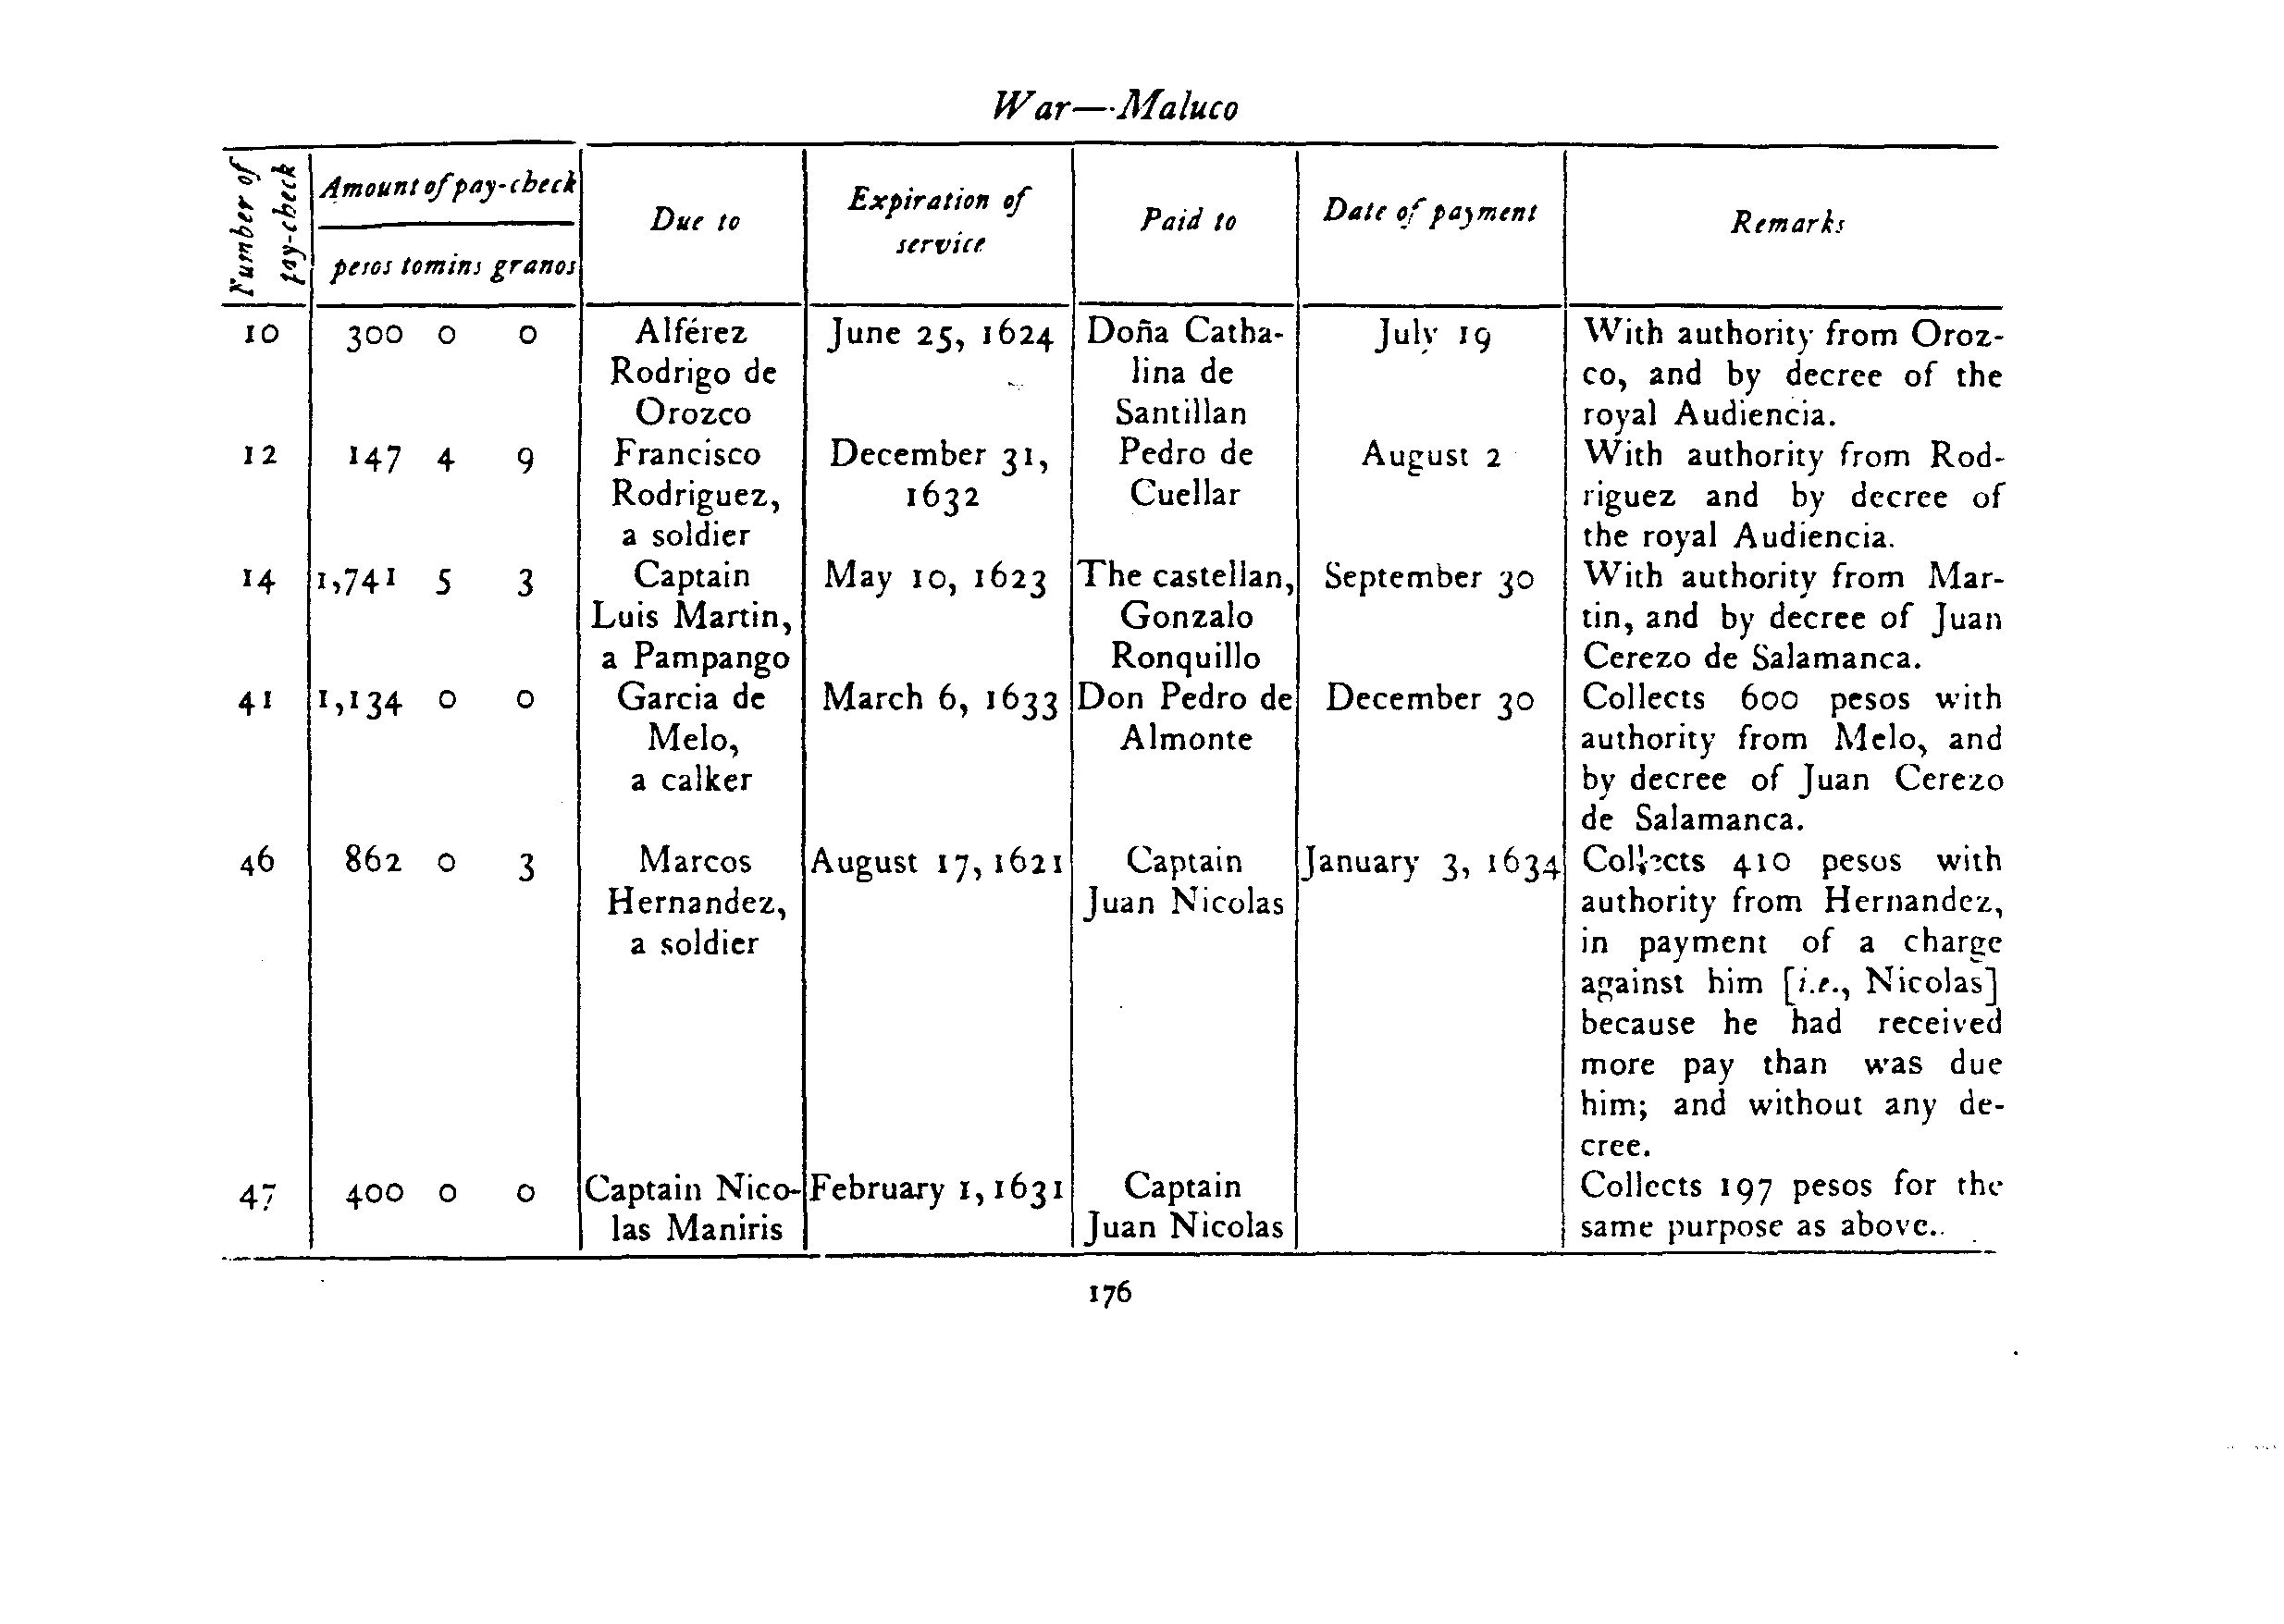 War—Maluco
Number of pay-check
Amount of pay-check
pesos tomins granos
Due to
Expiration of
service
Paid to
Date of payment
Remarks
10 300 0 0 Alférez June 25, 1624 Doña Catha- July 19 With authority from Oroz-
Rodrigo de lina de co, and by decree of the
Orozco Santillan royal Audiencia.
12 147 4 9 Francisco December 31, Pedro de August 2 With authority from Rod-
Rodriguez, 1632 Cuellar riguez and by decree of
a soldier the royal Audiencia.
14 1,741 5 3 Captain May 10, 1623 The castellan, September 30 With authority from Mar-
Luis Martin, Gonzalo tin, and by decree of Juan
a Pampango Ronquillo Cerezo de Salamanca.
41 1,134 0 0 Garcia de March 6, 1633 Don Pedro de December 30 Collects 600 pesos with
Melo, Almonte authority from Melo, and
a calker by decree of Juan Cerezo
de Salamanca.
46 862 0 3 Marcos August 17, 1621 Captain January 3, 1634 Collects 410 pesos with
Hernandez, Juan Nicolas authority from Hernandez,
a soldier in payment of a charge
against him [i.e., Nicolas]
because he had received
more pay than was due
him; and without any de-
cree.
47 400 0 0 Captain Nico- February 1, 1631 Captain Collects 197 pesos for the
las Maniris Juan Nicolas same purpose as above.
176